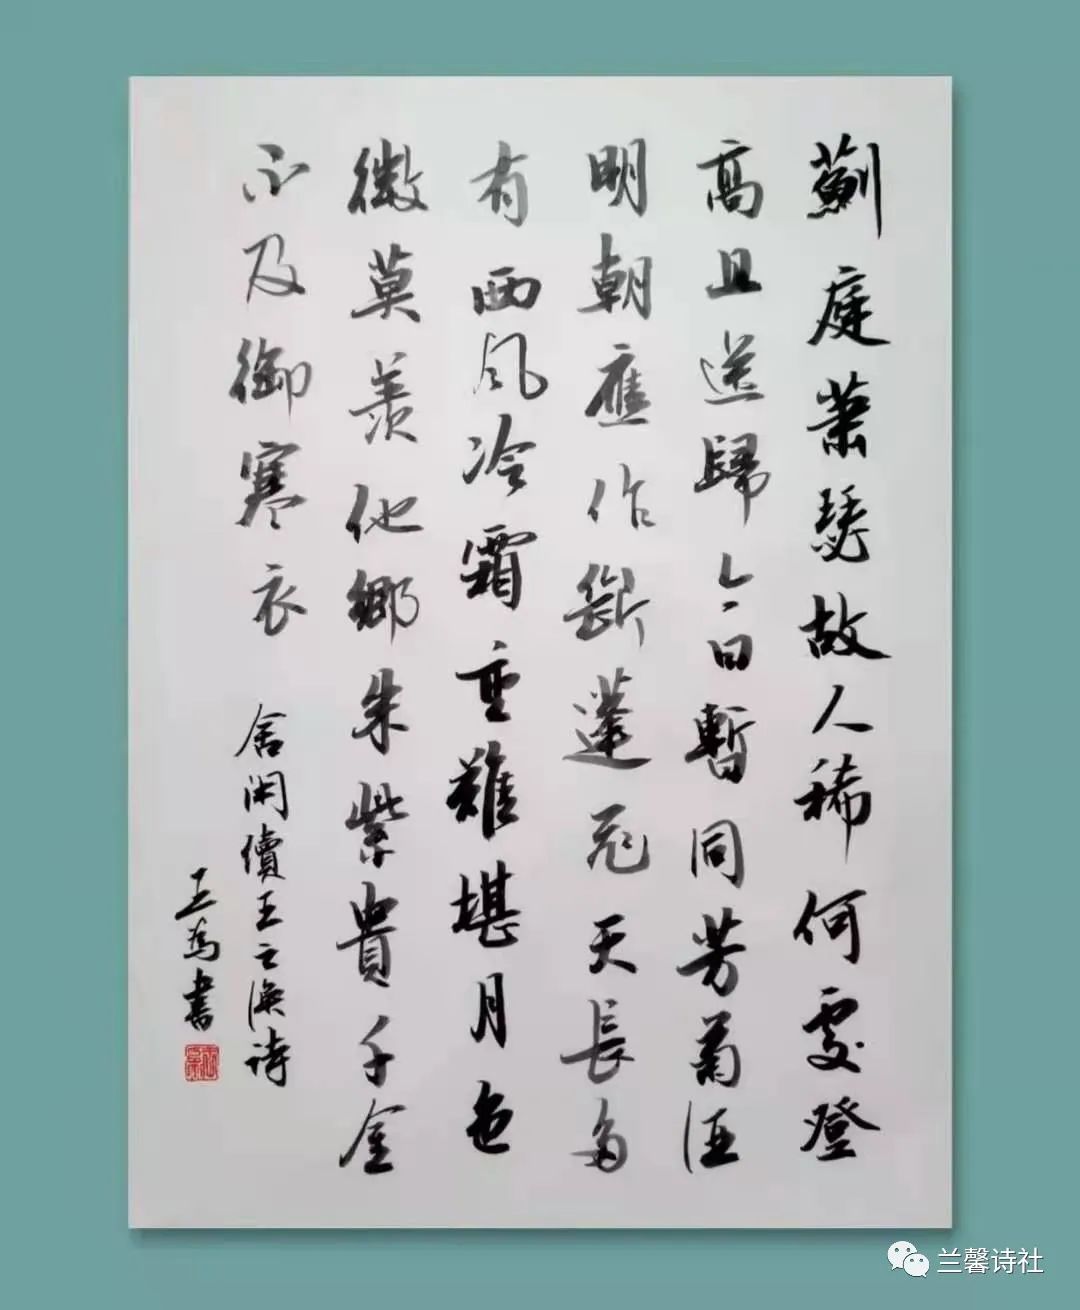 薊庭蕭瑟故人稀何處登
高且送歸今日暫同芳菊酒
明朝應作斷蓬飛天長多
有西风冷霜重難堪月色
微莫羨他鄉朱紫貴千金
不及御寒衣
舍閑續王之渙詩
王為書
兰馨诗社